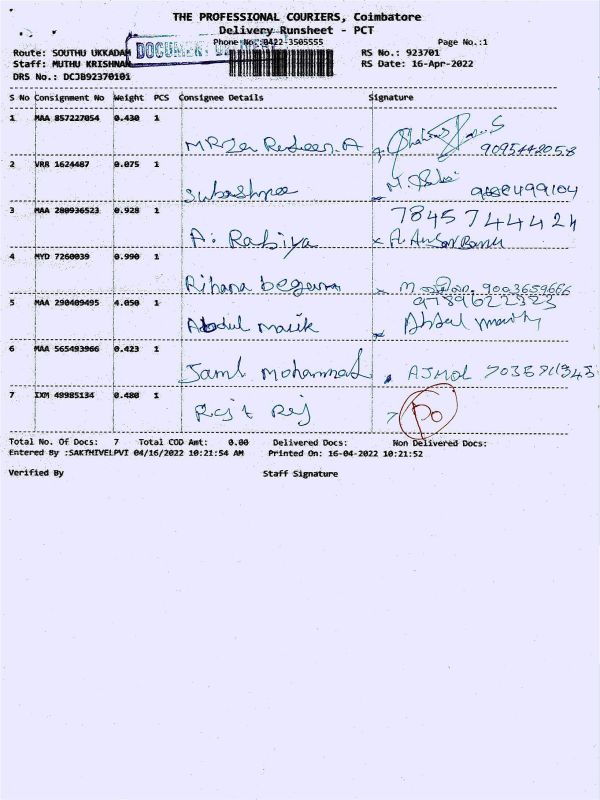 THE PROFESSIONAL COURIERS, Coimbatore
Delivery Runsheet - PCT
Phone No:0422-3505555 Page No.:1
Route: SOUTHU UKKADAM RS No.: 923701
Staff: MUTHU KRISHNAN RS Date: 16-Apr-2022
DRS No.: DCJB92370101
DOCUMENT
S No Consignment No Weight PCS Consignee Details Signature
1 MAA 857227054 0.430 1
9095442058
2 VRR 1624487 0.075 1
Subashree
3 MAA 280936523 0.928 1 7845744424
A. Rabiya
4 MYD 7260039 0.990 1
Rihana begum 9003659666
5 MAA 290409495 4.050 1 9789622323
Abdul malik Abdul
6 MAA 565493966 0.423 1
Jaml Mohammed AJMOL
7 IXM 49985134 0.480 1
Do
Total No. Of Docs: 7 Total COD Amt: 0.00 Delivered Docs: Non Delivered Docs:
Entered By :SAKTHIVELPVI 04/16/2022 10:21:54 AM Printed On: 16-04-2022 10:21:52
Verified By Staff Signature